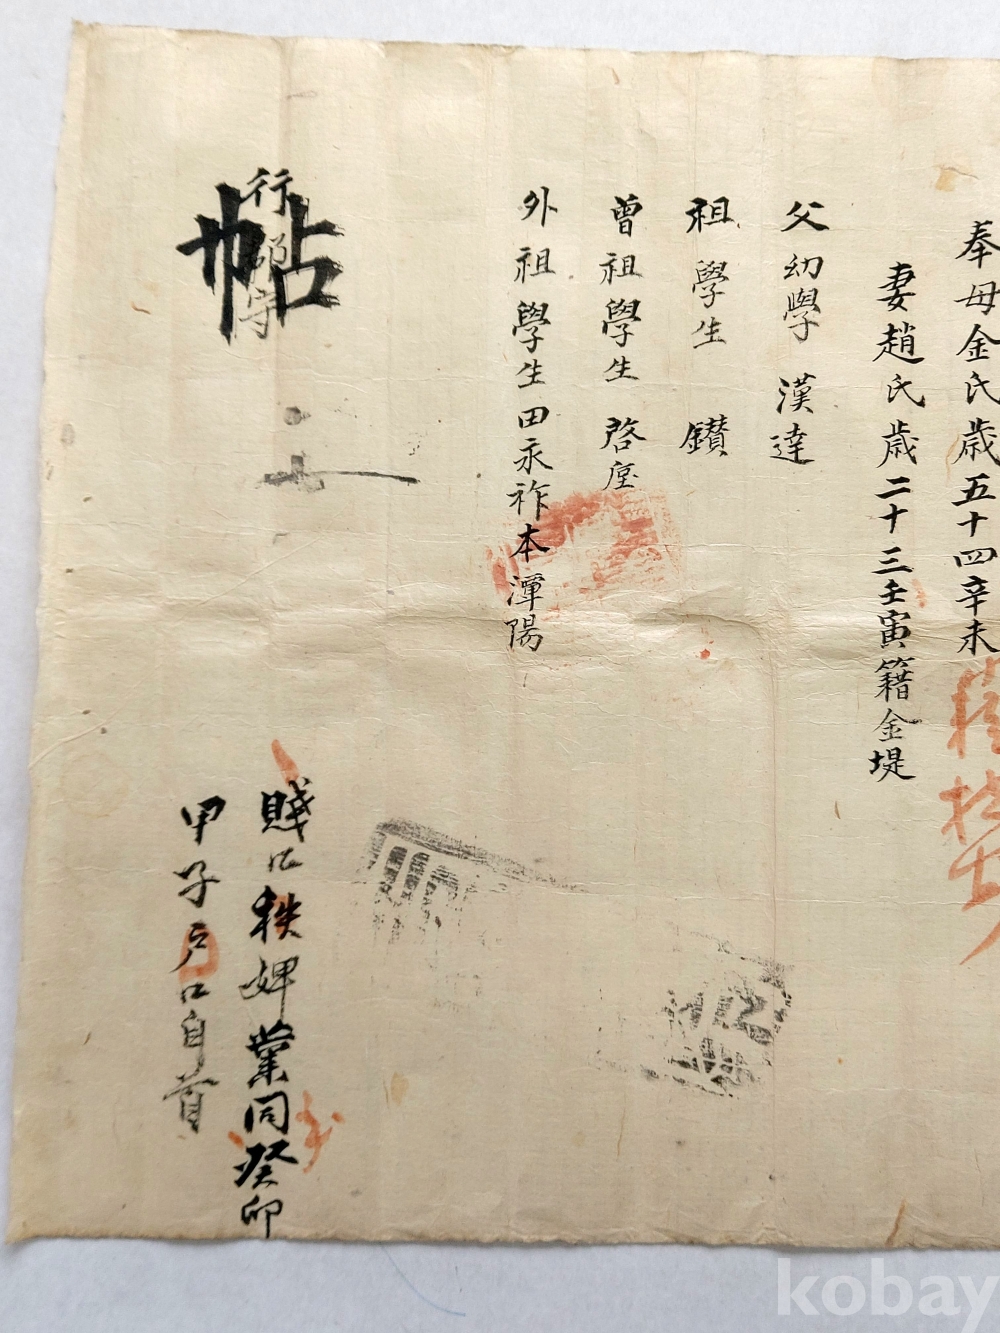 奉母金氏歲五十四辛未
妻趙氏歲二十三壬寅籍金堤
父幼學 漢達
祖學生 鑽
曾祖學生 啓
外祖學生田永祚本潭陽
帖
行
賤口秩婢業同癸卯
甲子戶口自首
kobay